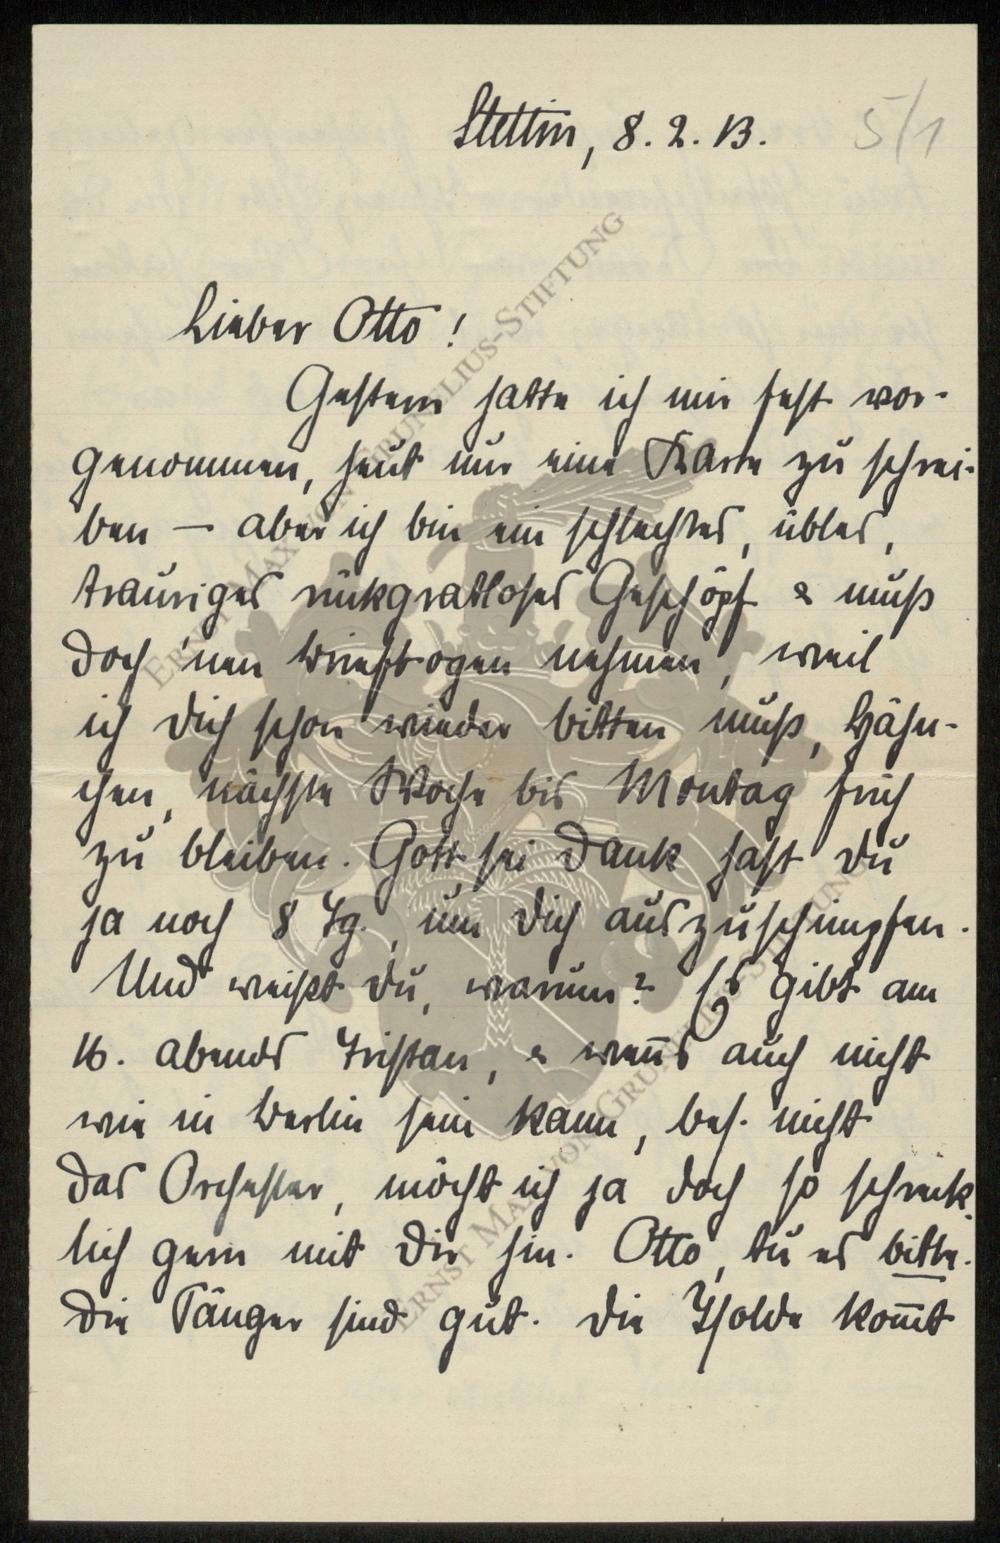 Stettin, 8. 2. 13.
5/1
Lieber Otto!
Gestern hatte ich mir fest vor-
genommen, heut nur eine Karte zu schrei-
ben – aber ich bin ein schlechtes, übles,
trauriges rückgratloses Geschöpf & muß
doch 'nen Briefbogen nehmen, weil
ich Dich schon wieder bitten muß, Hähn-
chen, nächste Woche bis Montag früh
zu bleiben. Gott sei Dank hast Du
ja noch 8 Tg., um Dich auszuschimpfen.
Und weißt Du, warum? Es gibt am
16. abends Tristan, & wenn's auch nicht
wie in Berlin sein kann, bes. nicht
das Orchester, möcht ich ja doch so schreck-
lich gern mit Dir hin. Otto, tu es bitte.
Die Sänger sind gut. Die Isolde kom̄t
ERNST MAX VON GRUNELIUS-STIFTUNG
ERNST MAX VON GRUNELIUS-STIFTUNG